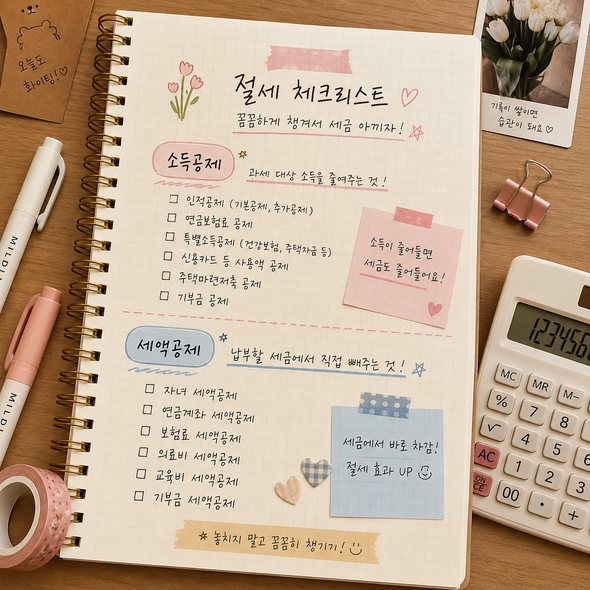 오늘도
화이팅!♡
절세 체크리스트 ♡
꼼꼼하게 챙겨서 세금 아끼자!
기록이 쌓이면
습관이 돼요♡
소득공제
과세 대상 소득을 줄여주는 것!
□ 인적공제 (기본공제, 추가공제)
□ 연금보험료 공제
□ 특별소득공제 (건강보험, 주택자금 등)
□ 신용카드 등 사용액 공제
□ 주택마련저축 공제
□ 기부금 공제
소득이 줄어들면
세금도 줄어들어요!
세액공제
납부할 세금에서 직접 빼주는 것!
□ 자녀 세액공제
□ 연금계좌 세액공제
□ 보험료 세액공제
□ 의료비 세액공제
□ 교육비 세액공제
□ 기부금 세액공제
세금에서 바로 차감!
절세 효과 UP
* 놓치지 말고 꼼꼼히 챙기기!
MILDLI
MILDLI
123456
MC MR M-
% 7 8
√ 4 5
AC 1 2 3
ON CE 00 • +